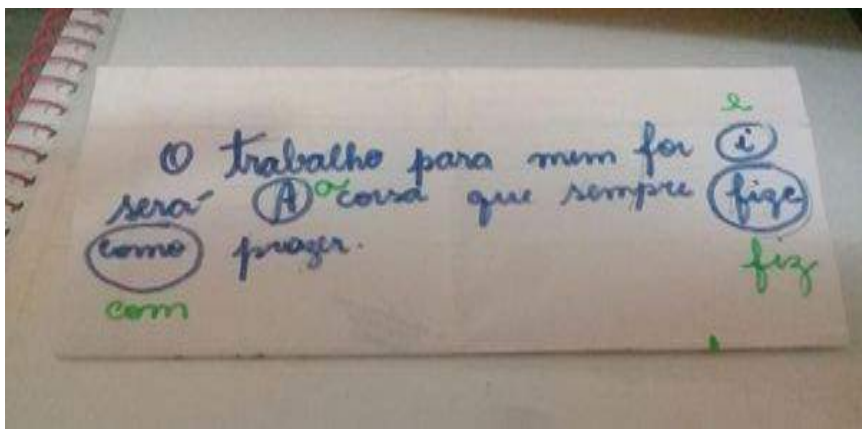 e
O trabalho para mim foi i
será A a coisa que sempre fize
como prazer.
fiz
com